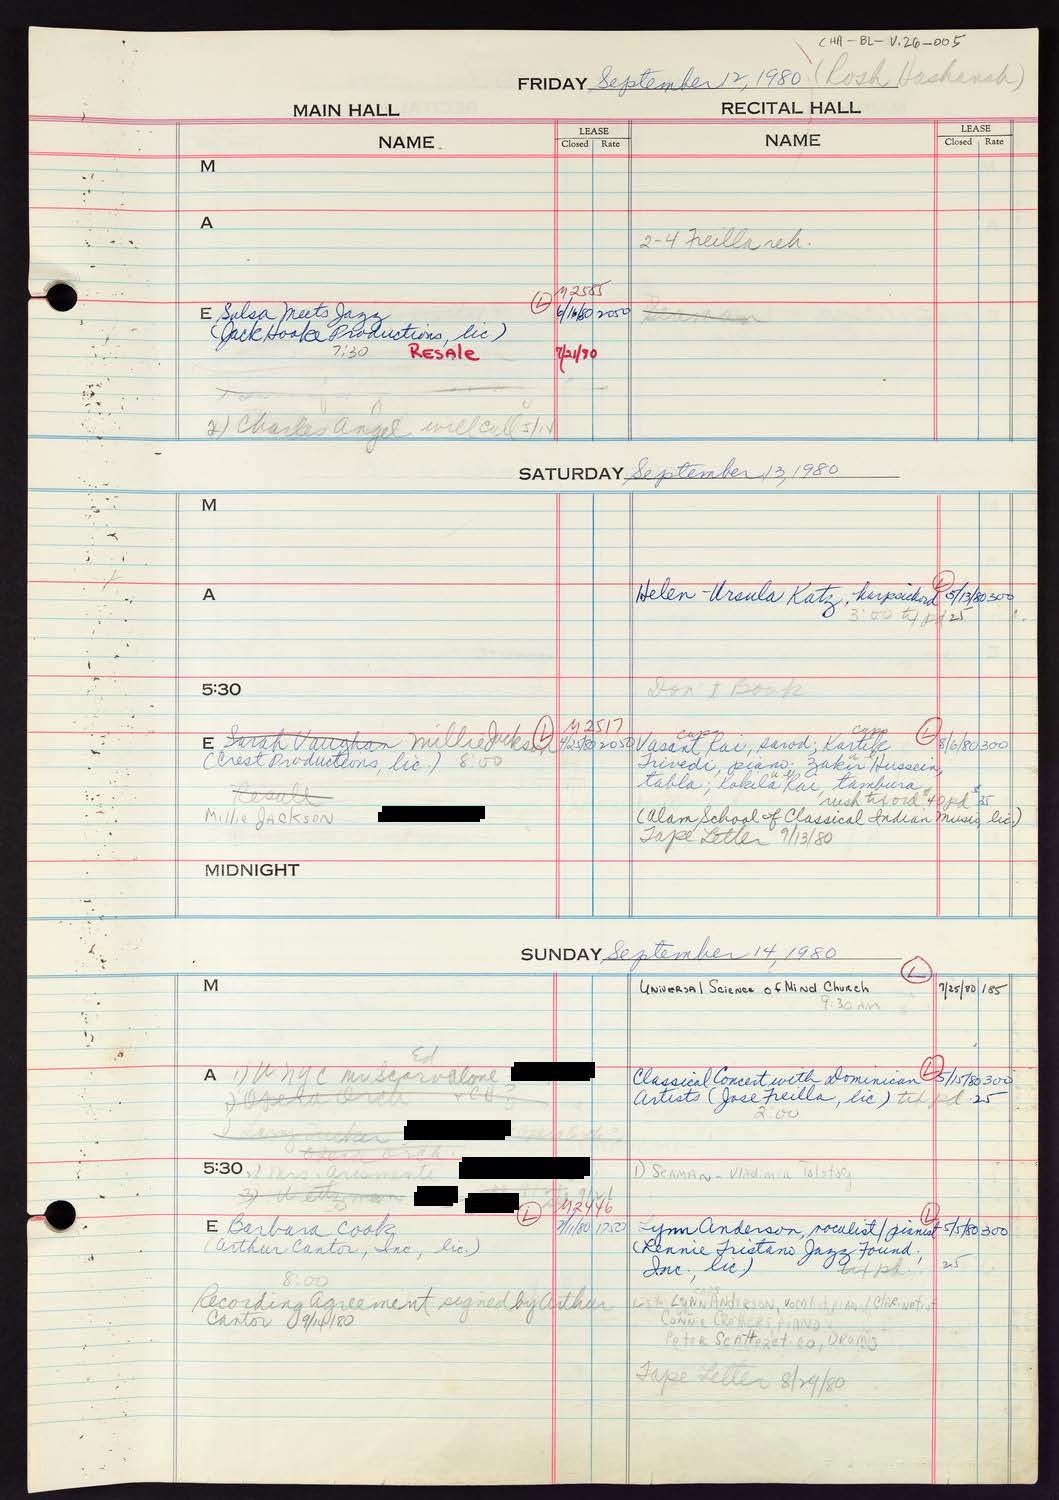 CHA-BL-V.26-005
FRIDAY September 12, 1980 (Rosh Hashanah)
MAIN HALL
RECITAL HALL
NAME
LEASE
Closed Rate
NAME
LEASE
Closed Rate
M
A
2-4 Freilla reh.
M2585
E Salsa Meets Jazz L 6/16/80 2050
(Jack Hooke Productions, lic)
7:30 RESALE 7/21/80
2) Charles Angel will call 5/14
SATURDAY September 13, 1980
M
A Helen-Ursula Katz, harpsichord L 5/13/80 300
3:00 tx pd 25
5:30 Don't Book
M2517
E Sarah Vaughan Millie Jackson L 4/25/80 2050
(Crest Productions, lic.) 8:00
Resale
Millie JACKSON
Vasant Rai, sarod; Kartik L 8/6/80 300
Trivedi, piano; Zakir Hussein,
tabla; Kokila Rai, tambura
rush txt ord $40 pd $25
(Alam School of Classical Indian Music, lic.)
Tape Letter 9/13/80
MIDNIGHT
SUNDAY September 14, 1980
M Universal Science of Mind Church L 7/25/80 185
9:30 AM
Ed
A 1) WNYC Mr Scarvalone
Classical Concert with Dominican L 5/15/80 300
Artists (Jose Freilla, lic) txt pd 25
2:00
5:30
1) SERMAN - Vladimir Tolstoy
M2446
E Barbara Cook L 2/11/80 1750
(Arthur Cantor, Inc, lic.)
8:00
Recording Agreement signed by Arthur
Cantor 9/14/80
Lynn Anderson, vocalist/pianist L 5/5/80 300
(Lennie Tristano Jazz Found.,
Inc., lic) txt pd. 25
LYNN ANDERSON, vocalist, piano/Clarinetist
Connie CROTHERS, PIANO
Peter SCATTARETICO, DRUMS
Tape Letter 8/29/80